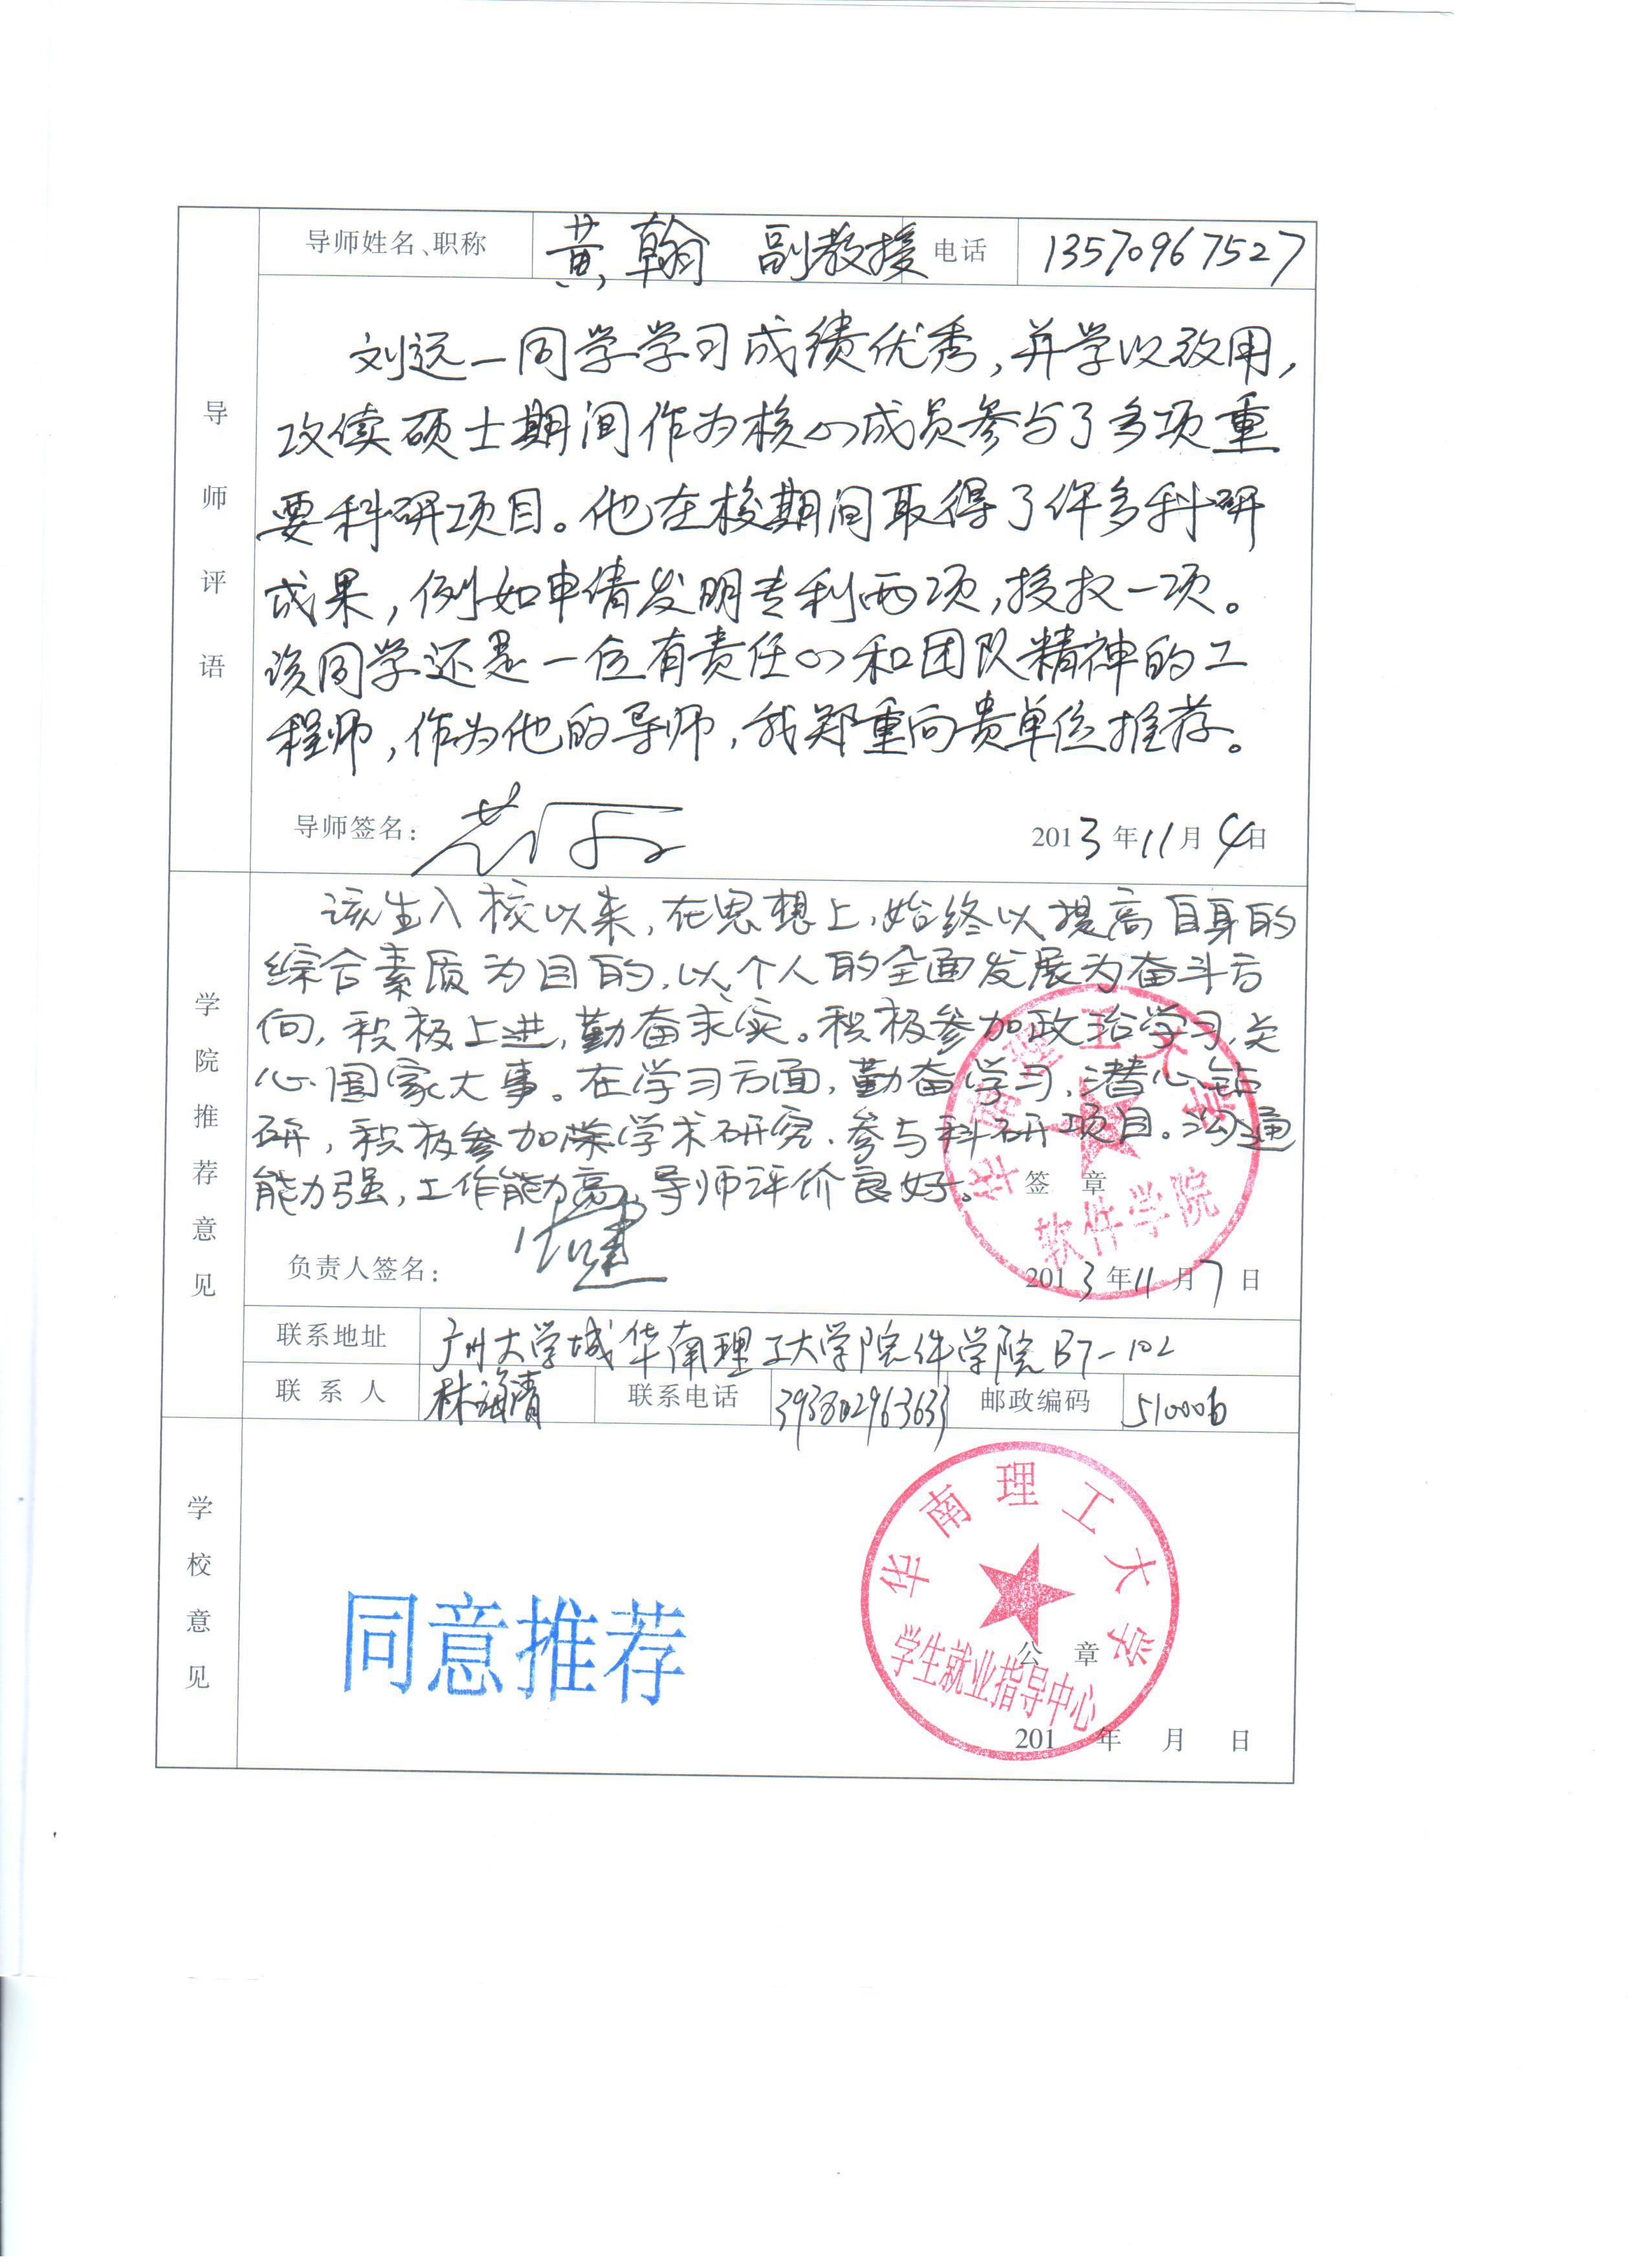 导师姓名、职称 黄翰 副教授 电话 13570967527
导师评语
刘远一同学学习成绩优秀,并学以致用,
攻读硕士期间作为核心成员参与了多项重
要科研项目。他在校期间取得了许多科研
成果,例如申请发明专利两项,授权一项。
该同学还是一位有责任心和团队精神的工
程师,作为他的导师,我郑重向贵单位推荐。
导师签名: 2013年11月4日
学院推荐意见
该生入校以来,在思想上,始终以提高自身的
综合素质为目的,以个人的全面发展为奋斗方
向,积极上进,勤奋求实。积极参加政治学习,关
心国家大事。在学习方面,勤奋学习,潜心钻
研,积极参加学术研究、参与科研项目。沟通
能力强,工作能力高,导师评价良好。
签章
华南理工大学
软件学院
负责人签名: 2013年11月7日
联系地址 广州大学城华南理工大学院件学院B7-102
联系人 林海清 联系电话 邮政编码 510006
学校意见
同意推荐
华南理工大学
学生就业指导中心
公章
201 年 月 日